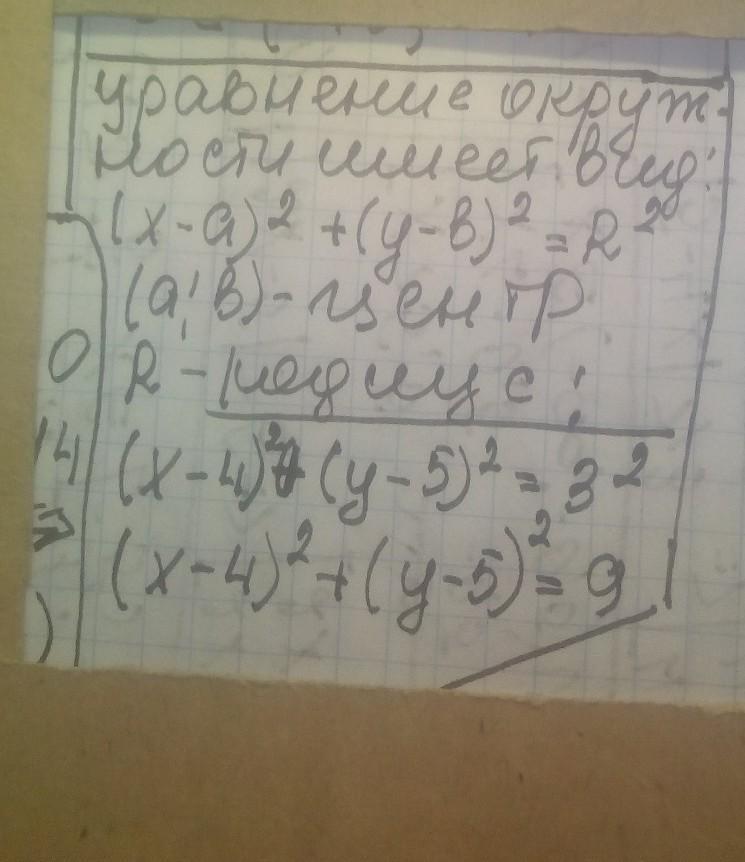 уравнение окруж-
ности имеет вид:
(x-a)² + (y-b)² = R²
(a; b) - центр
0
R - радиус;
14
(x-4)² + (y-5)² = 3²
(x-4)² + (y-5)² = 9
)